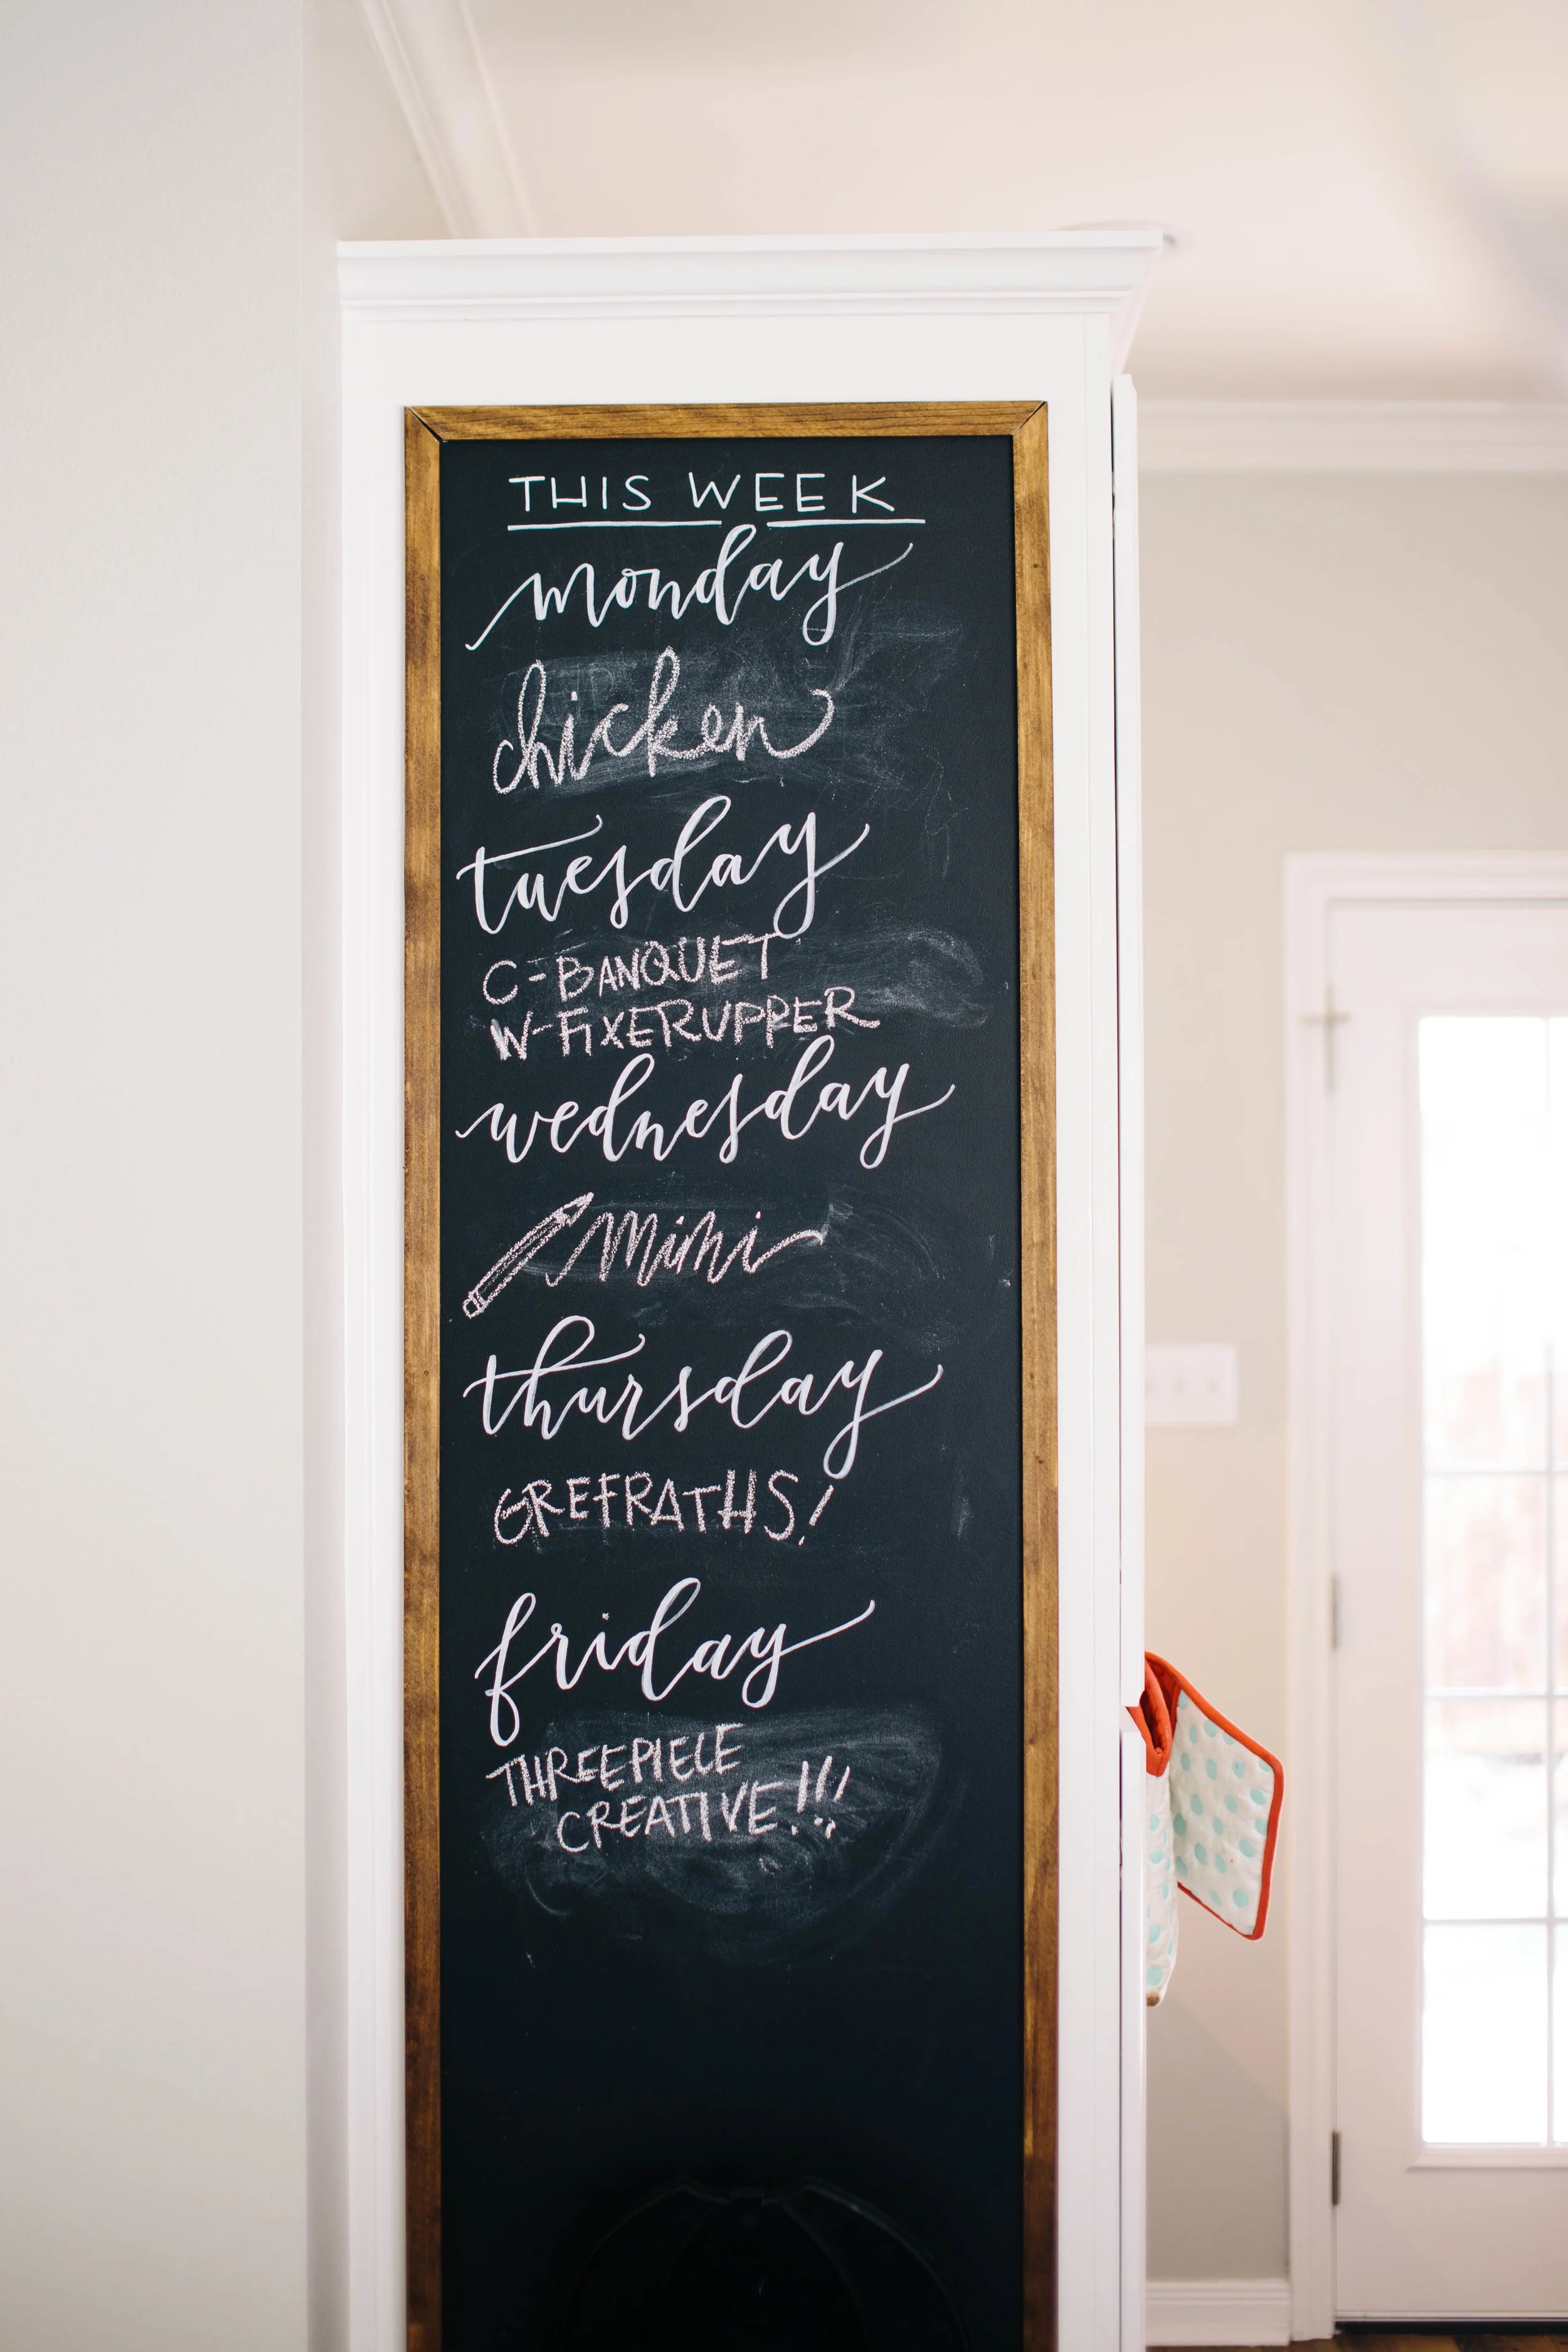 THIS WEEK
monday
chicken
tuesday
C-BANQUET
W-FIXERUPPER
wednesday
mimi
thursday
GREFRATHS!
friday
THREEPIECE
CREATIVE!!!